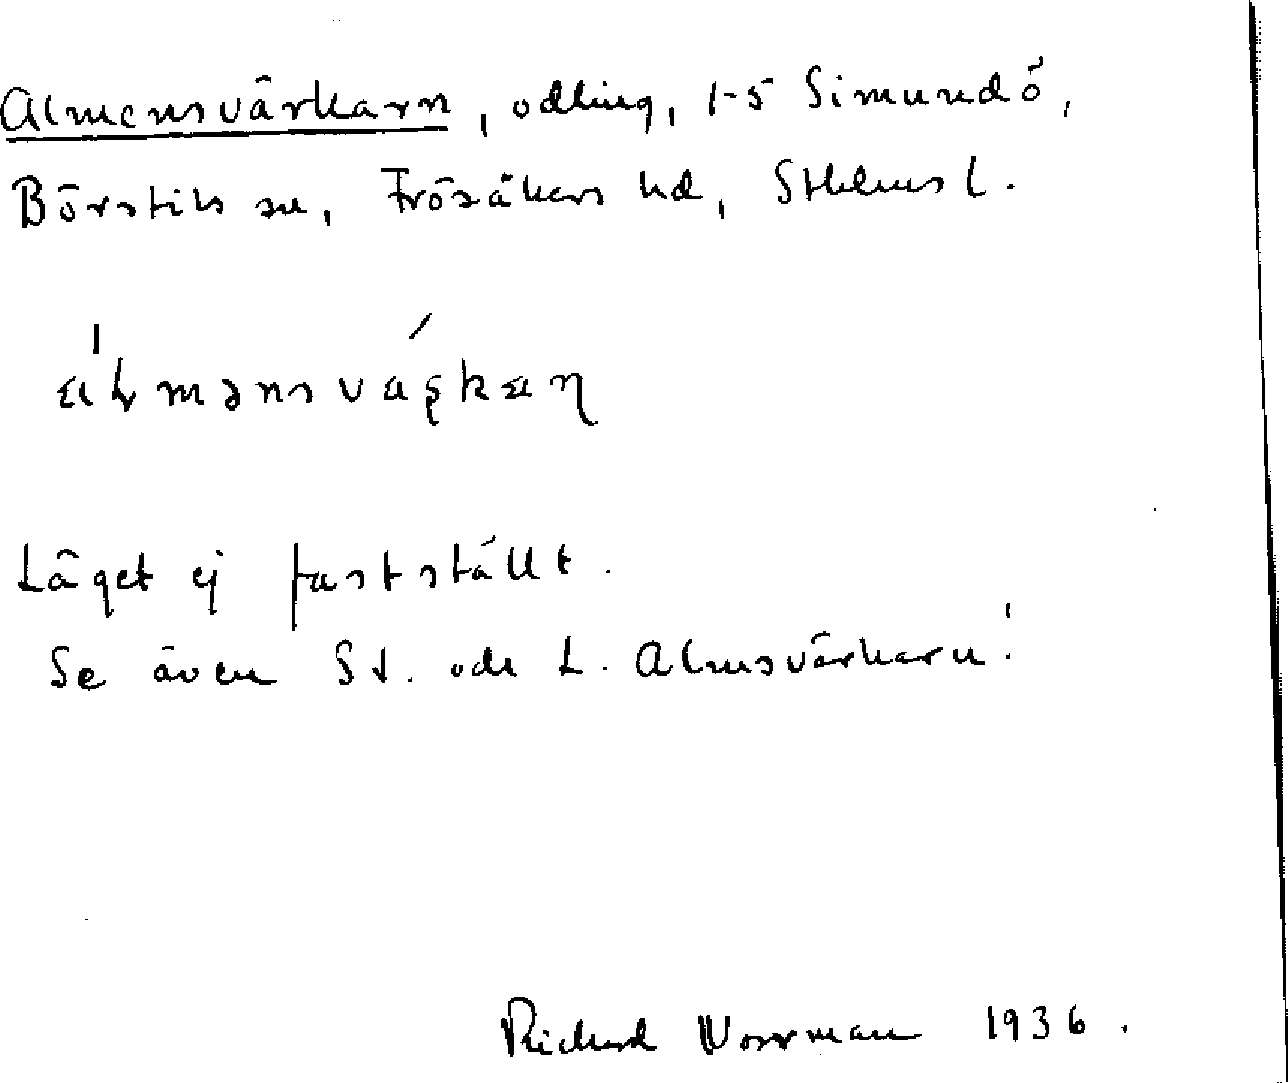 Almensvärkarn, odling, 1-5 Simundö,
Börstils sn, Frösåkers hd, Sthlms l.
Läget ej fastställt.
Se även St. och L. Almsvärkarn!
Richard Norrman 1936.